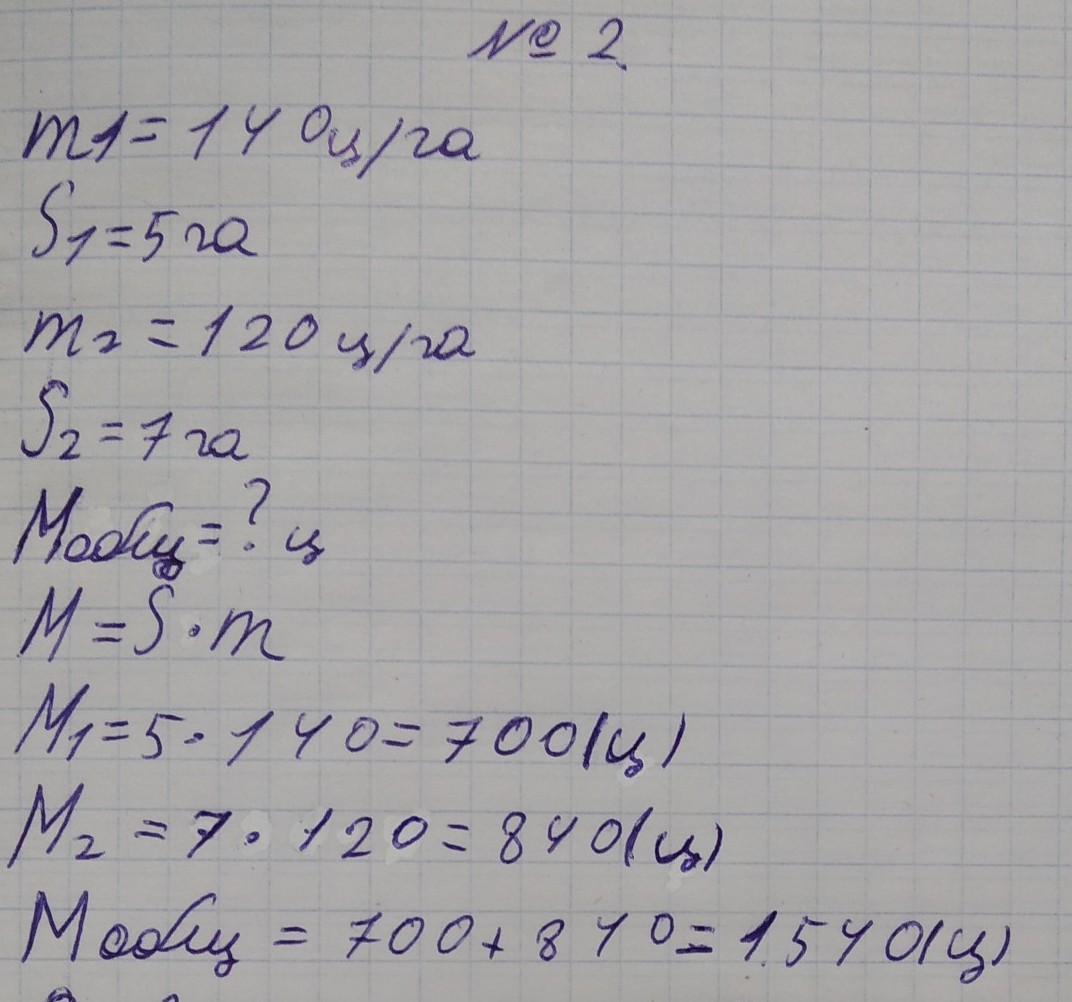 № 2
m1 = 140ц/га
S1 = 5 га
m2 = 120 ц/га
S2 = 7 га
Mобщ = ? ц
M = S · m
M1 = 5 · 140 = 700(ц)
M2 = 7 · 120 = 840(ц)
Mобщ = 700 + 840 = 1540(ц)